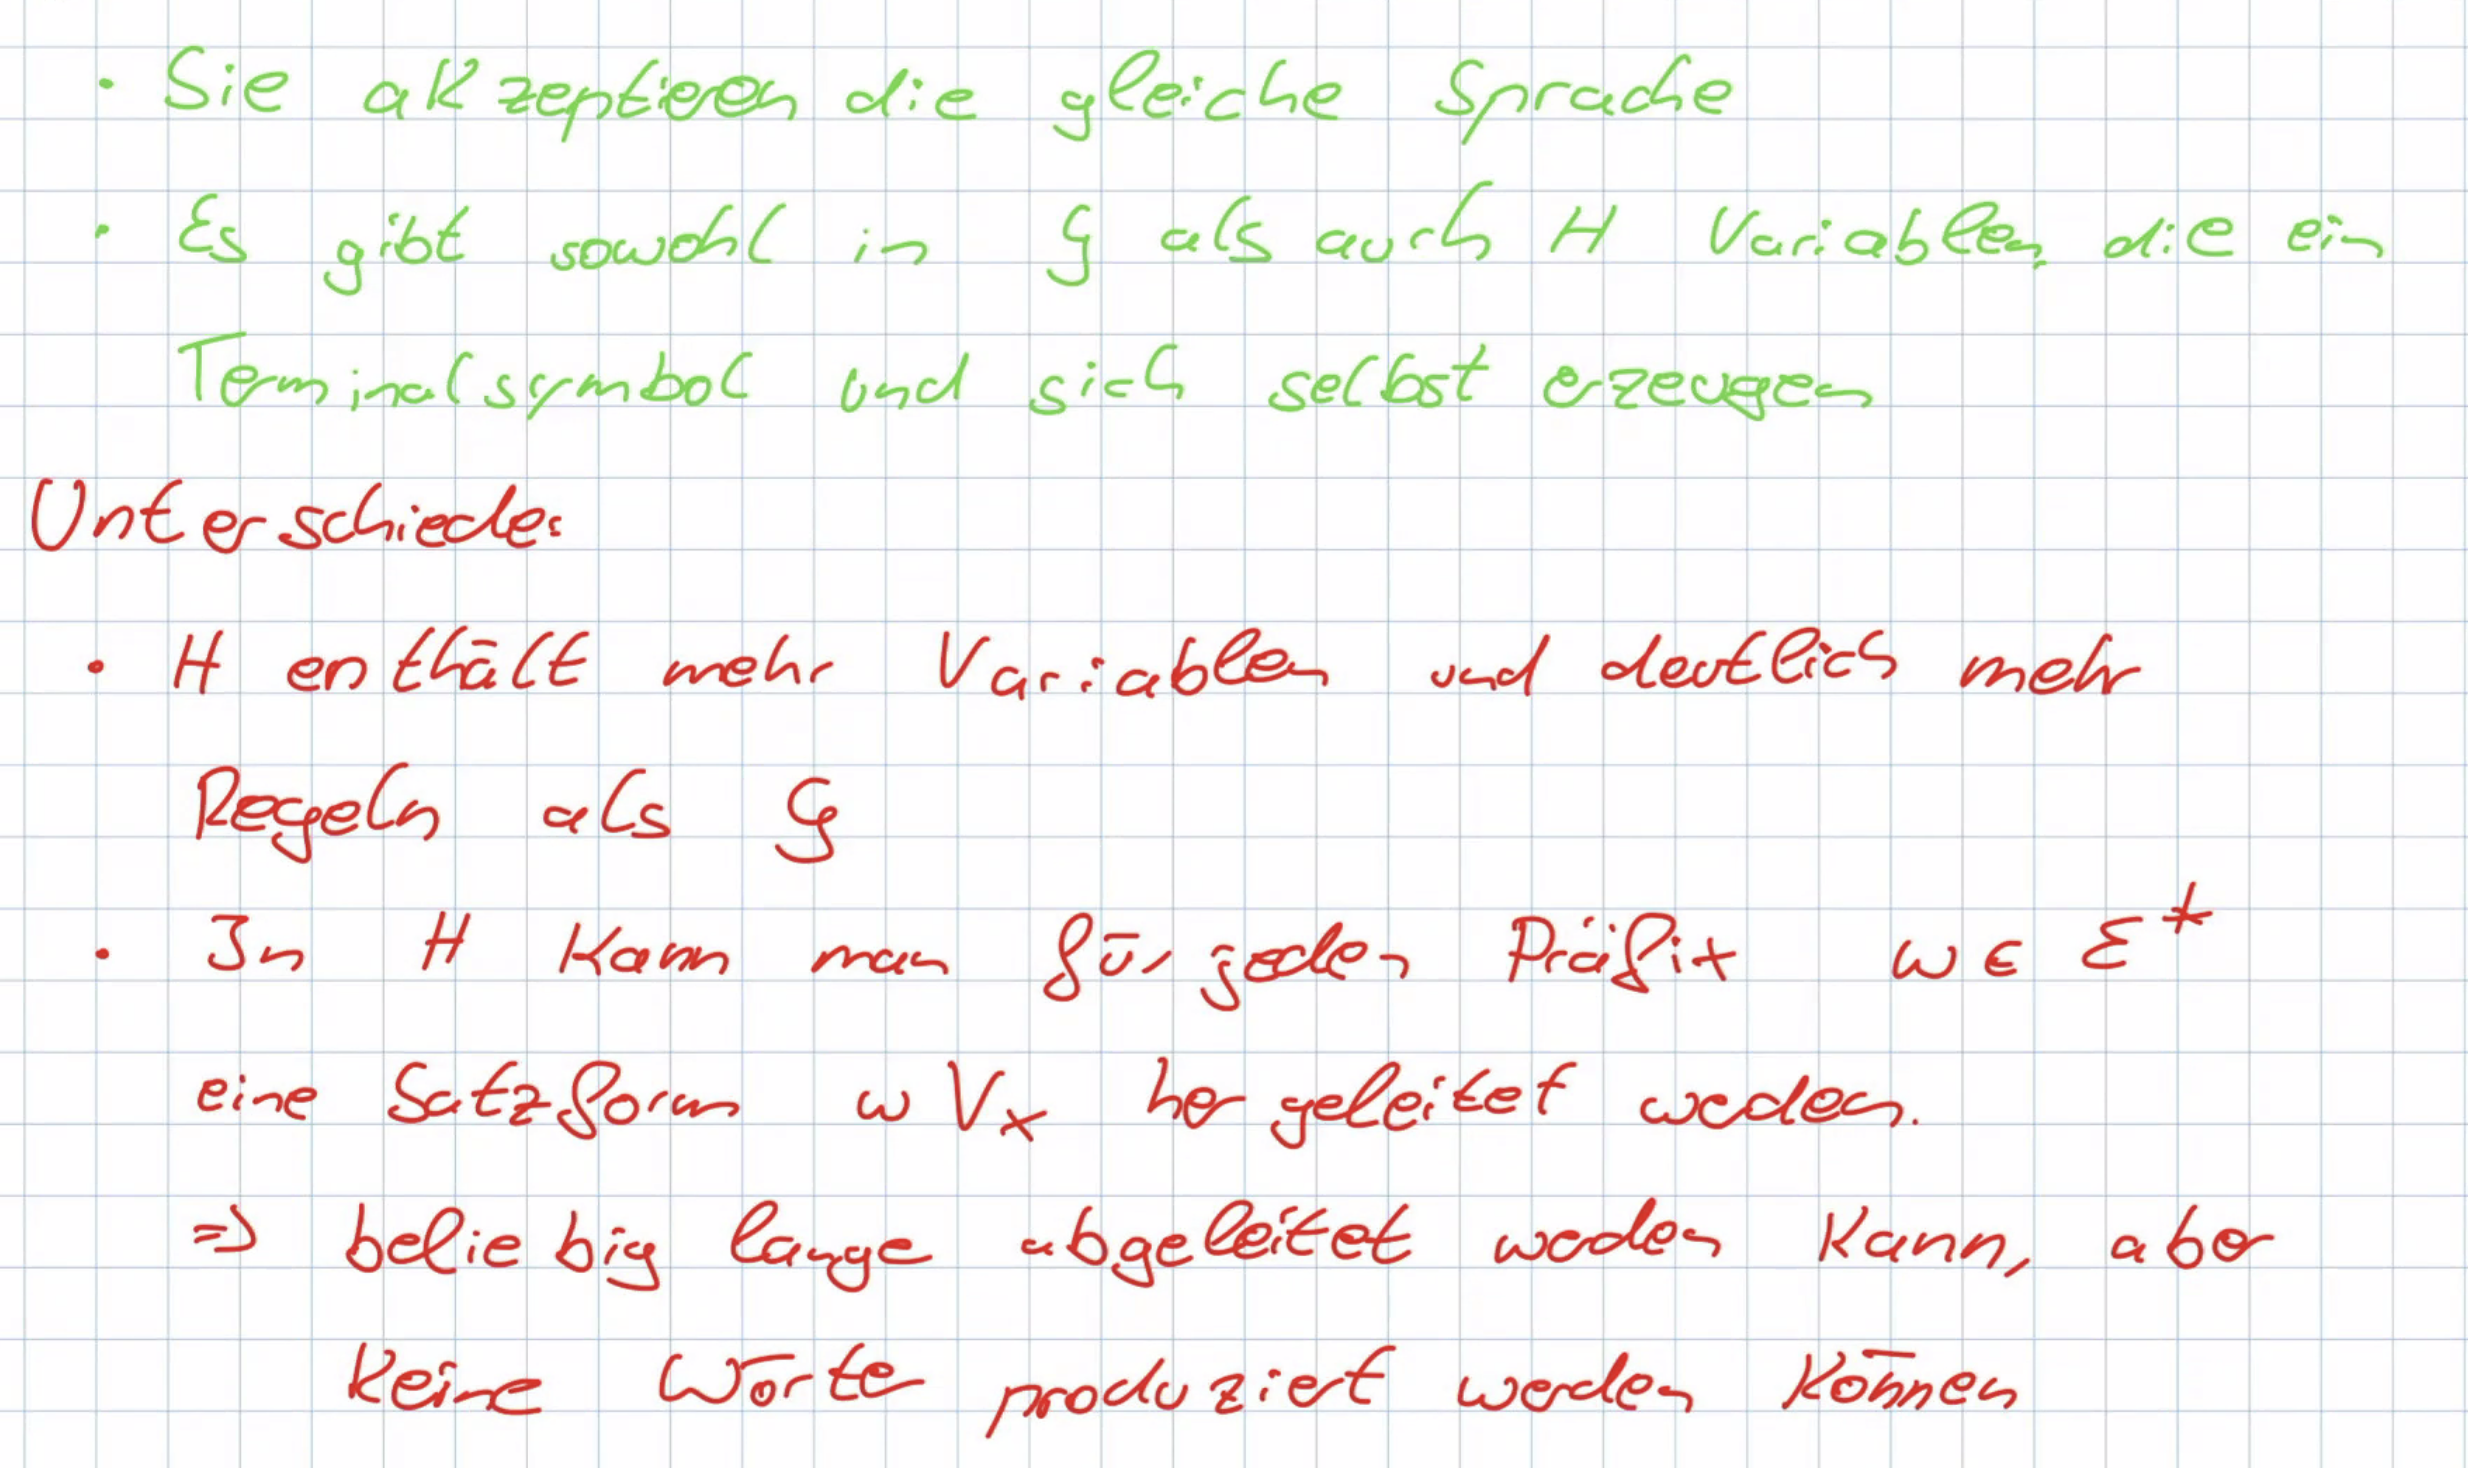 · Sie akzeptieren die gleiche Sprache
· Es gibt sowohl in G als auch H Variablen, die ein
Terminalsymbol und sich selbst erzeugen
Unterschiede:
· H enthält mehr Variablen und deutlich mehr
Regeln als G
· In H kann man für jeden Präfix w ∈ Σ*
eine Satzform w Vx hergeleitet werden.
⇒ beliebig lange abgeleitet werden kann, aber
keine Wörter produziert werden können